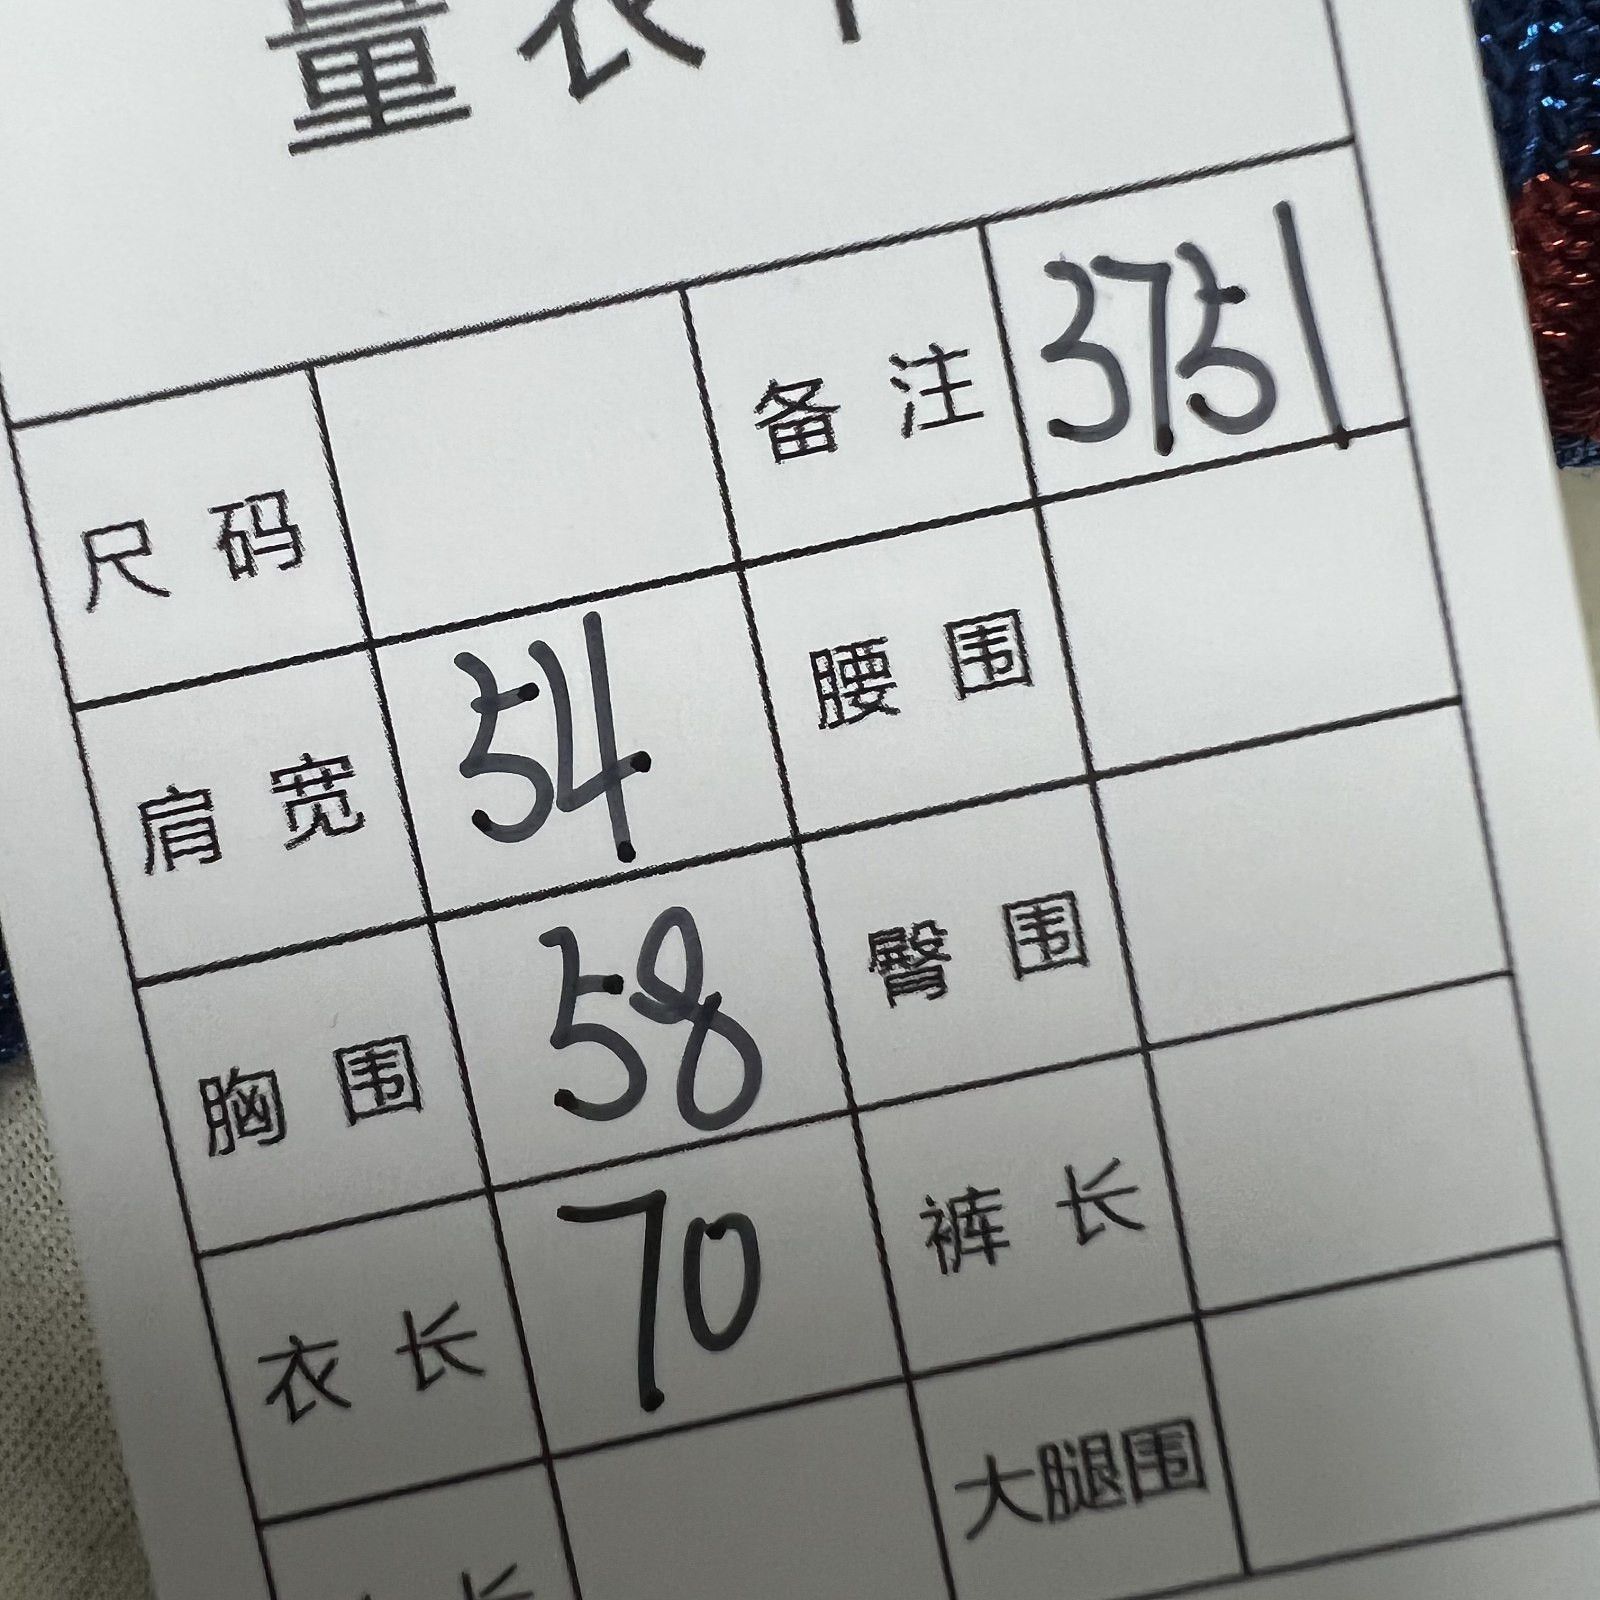 量衣
尺码 备注 3751
肩宽 54 腰围
胸围 58 臀围
衣长 70 裤长
大腿围
长